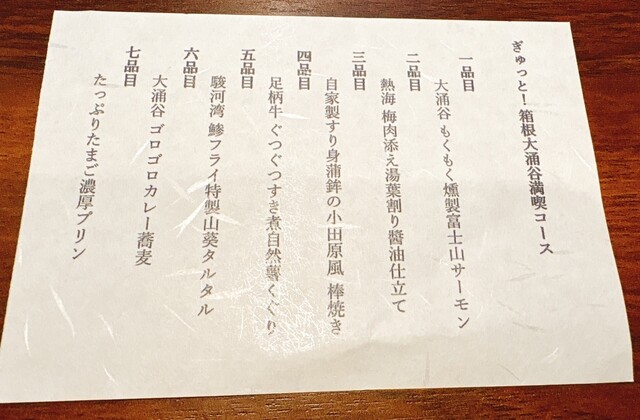 ぎゅっと！箱根大涌谷満喫コース
一品目
大涌谷 もくもく燻製富士山サーモン
二品目
熱海 梅肉添え湯葉割り醬油仕立て
三品目
自家製すり身蒲鉾の小田原風 棒焼き
四品目
足柄牛 ぐつぐつすき煮自然薯くぐり
五品目
駿河湾 鯵フライ特製山葵タルタル
六品目
大涌谷 ゴロゴロカレー蕎麦
七品目
たっぷりたまご濃厚プリン